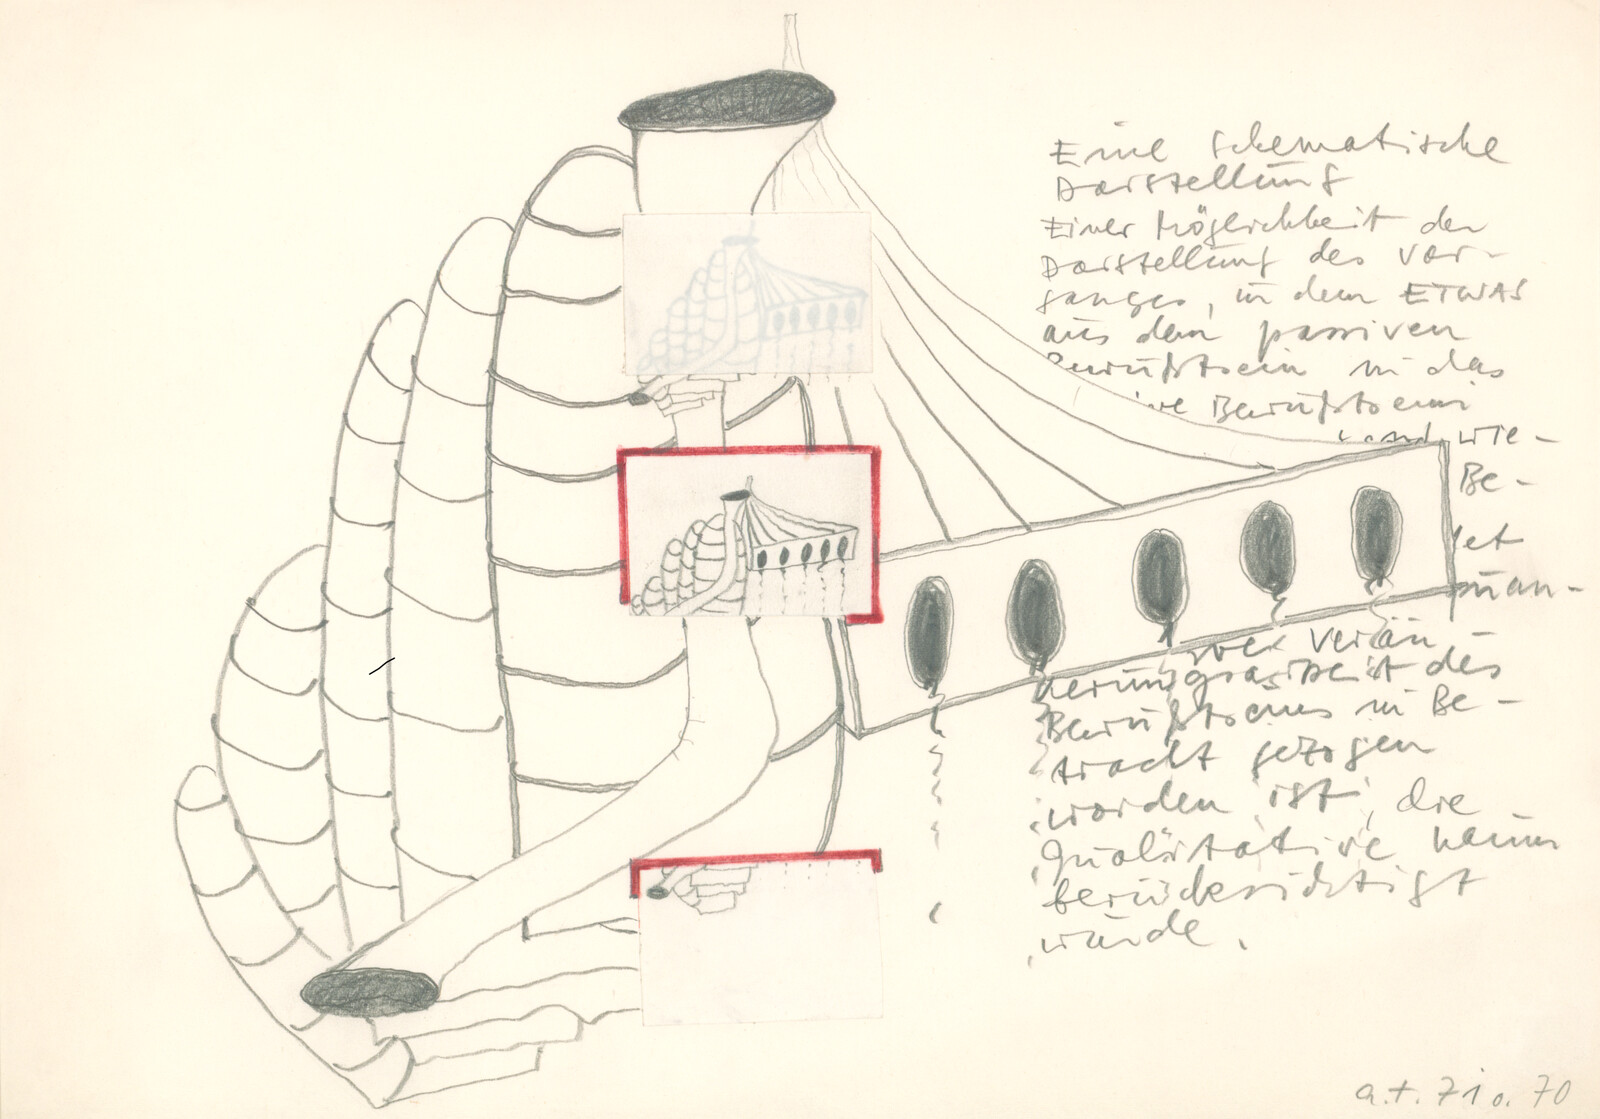 Eine schematische
Darstellung
Einer Möglichkeit der
Darstellung des Vor-
ganges, in dem ETWAS
aus dem passiven
Bewußtsein in das
ive Bewußtsein
und wie-
Be-
let
quan-
Verän
derungsarbeit des
Bewußtseins in Be-
tracht gezogen
worden ist, die
Qualitative kaum
berücksichtigt
wurde.
a.t. 710.70